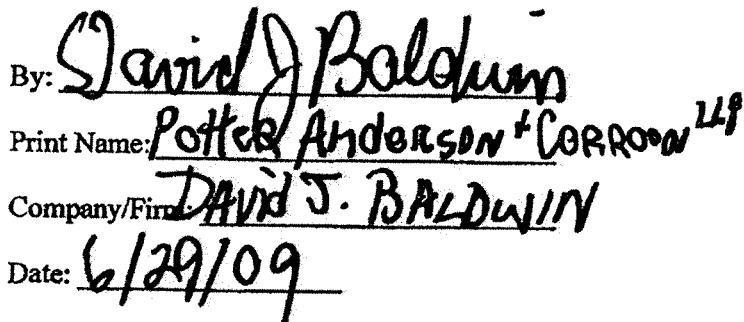 By: David J Baldwin
Print Name: Potter Anderson + Corroon LLP
Company/Firm: David J. BALDWIN
Date: 6/29/09